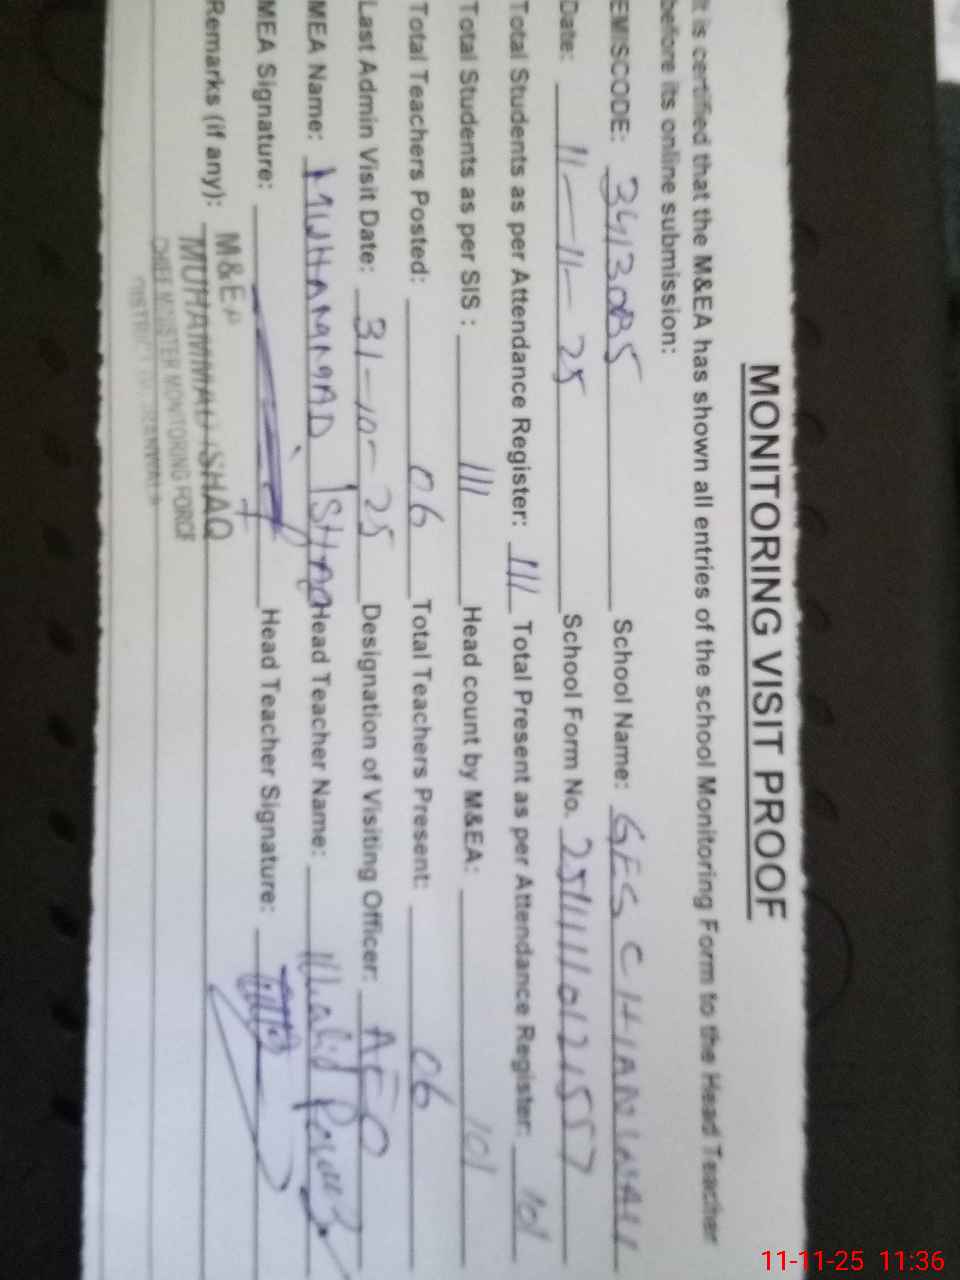 MONITORING VISIT PROOF
It is certified that the M&EA has shown all entries of the school Monitoring Form to the Head Teacher
before its online submission:
EMISCODE: 34130B5 School Name: GES CHIANWALI
Date: 11-11-25 School Form No. 251111012157
Total Students as per Attendance Register: 111 Total Present as per Attendance Register: 101
Total Students as per SIS : 111 Head count by M&EA: 101
Total Teachers Posted: 06 Total Teachers Present: 06
Last Admin Visit Date: 31-10-25 Designation of Visiting Officer: AEO
MEA Name: MUHAMMAD ISHAQ Head Teacher Name: Khalid Pervaiz
MEA Signature: Head Teacher Signature:
Remarks (if any):
M&EA
MUHAMMAD ISHAQ
CHIEF MINISTER MONITORING FORCE
DISTRICT
11-11-25 11:36